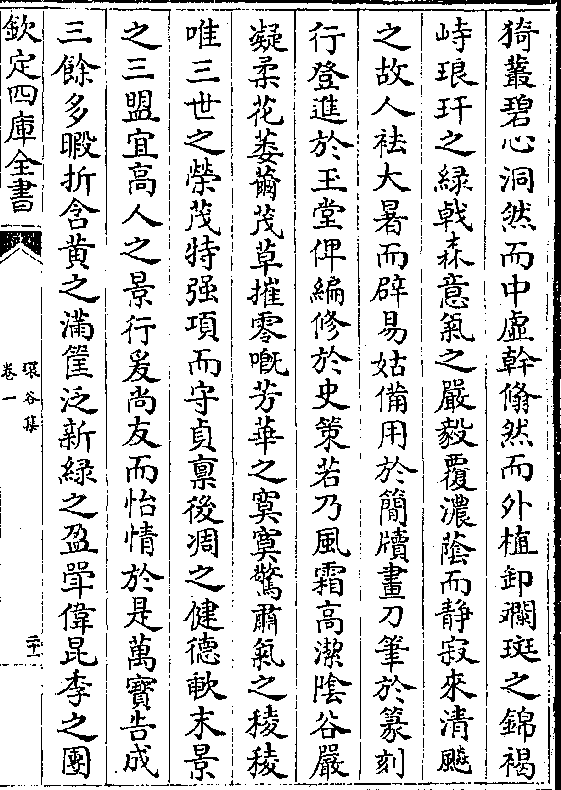 猗叢碧心洞然而中虛幹翛然而外植卸斕斑之錦褐
峙琅玕之緑㦸森意氣之嚴毅覆濃蔭而静寂來清飈
之故人袪大暑而辟易姑備用於簡牘畫刀筆於篆刻
行登進於玉堂俾編修於史策若乃風霜高潔陰谷嚴
凝柔花萎薾茂草摧零嘅芳華之寞寞驚肅氣之稜稜
唯三世之榮茂特强項而守貞禀後凋之健德軼末景
之三盟宜高人之景行爰尚友而怡情於是萬寳告成
三餘多暇折含黄之滿筐泛新緑之盈斝偉昆季之團
欽定四庫全書
環谷集
卷一
二十